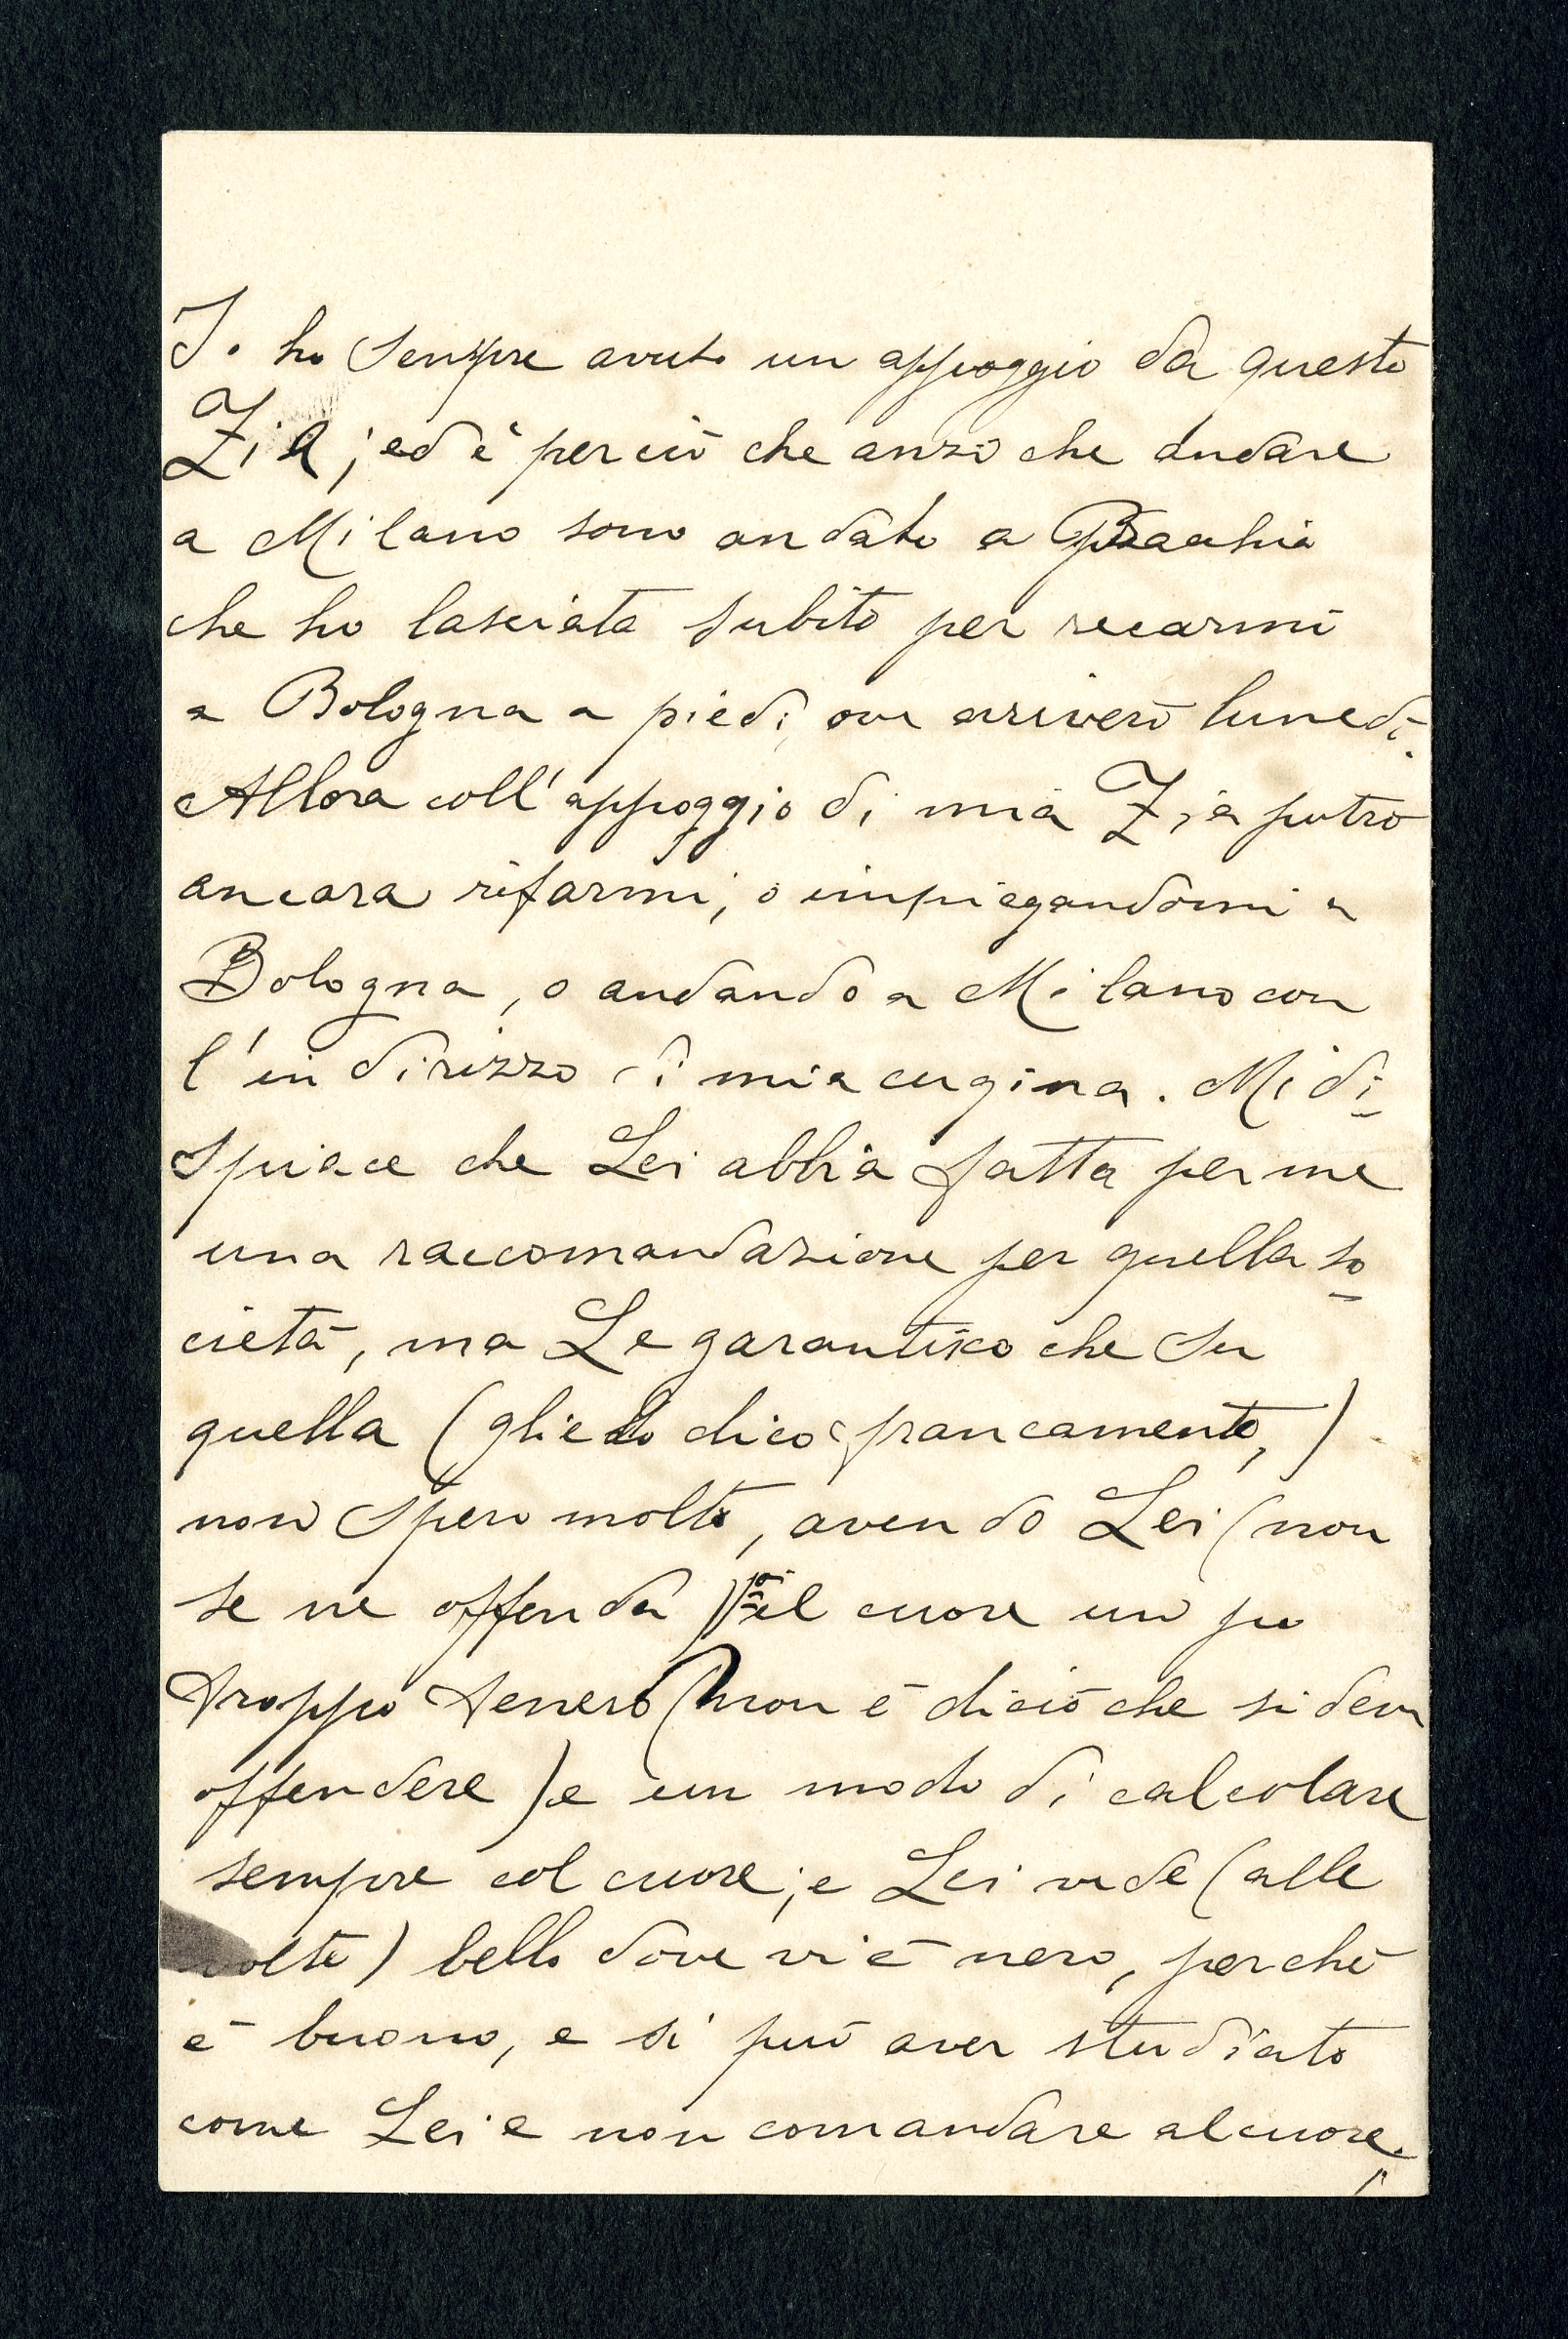 Io ho sempre avuto un appoggio da questo
Zia; ed è perciò che anzi che andare
a Milano sono andato a Pracchia
che ho lasciata subito per recarmi
a Bologna a piedi, ove arriverò lunedì.
Allora coll'appoggio di mia Zia potrò
ancora rifarmi; o impiegandomi a
Bologna, o andando a Milano con
l'indirizzo di mia cugina. Mi di
spiace che Lei abbia fatta per me
una raccomandazione per quella so
cietà, ma Le garantisco che su
quella (glielo dico francamente,)
non spero molto, avendo Lei (non
se ne offenda) il cuore un po
troppo tenero (non è di ciò che si deve
offendere) e un modo di calcolare
sempre col cuore; e Lei vede (alle
volte) bello dove vi è nero, perchè
è buono, e si può aver studiato
come Lei e non comandare al cuore,